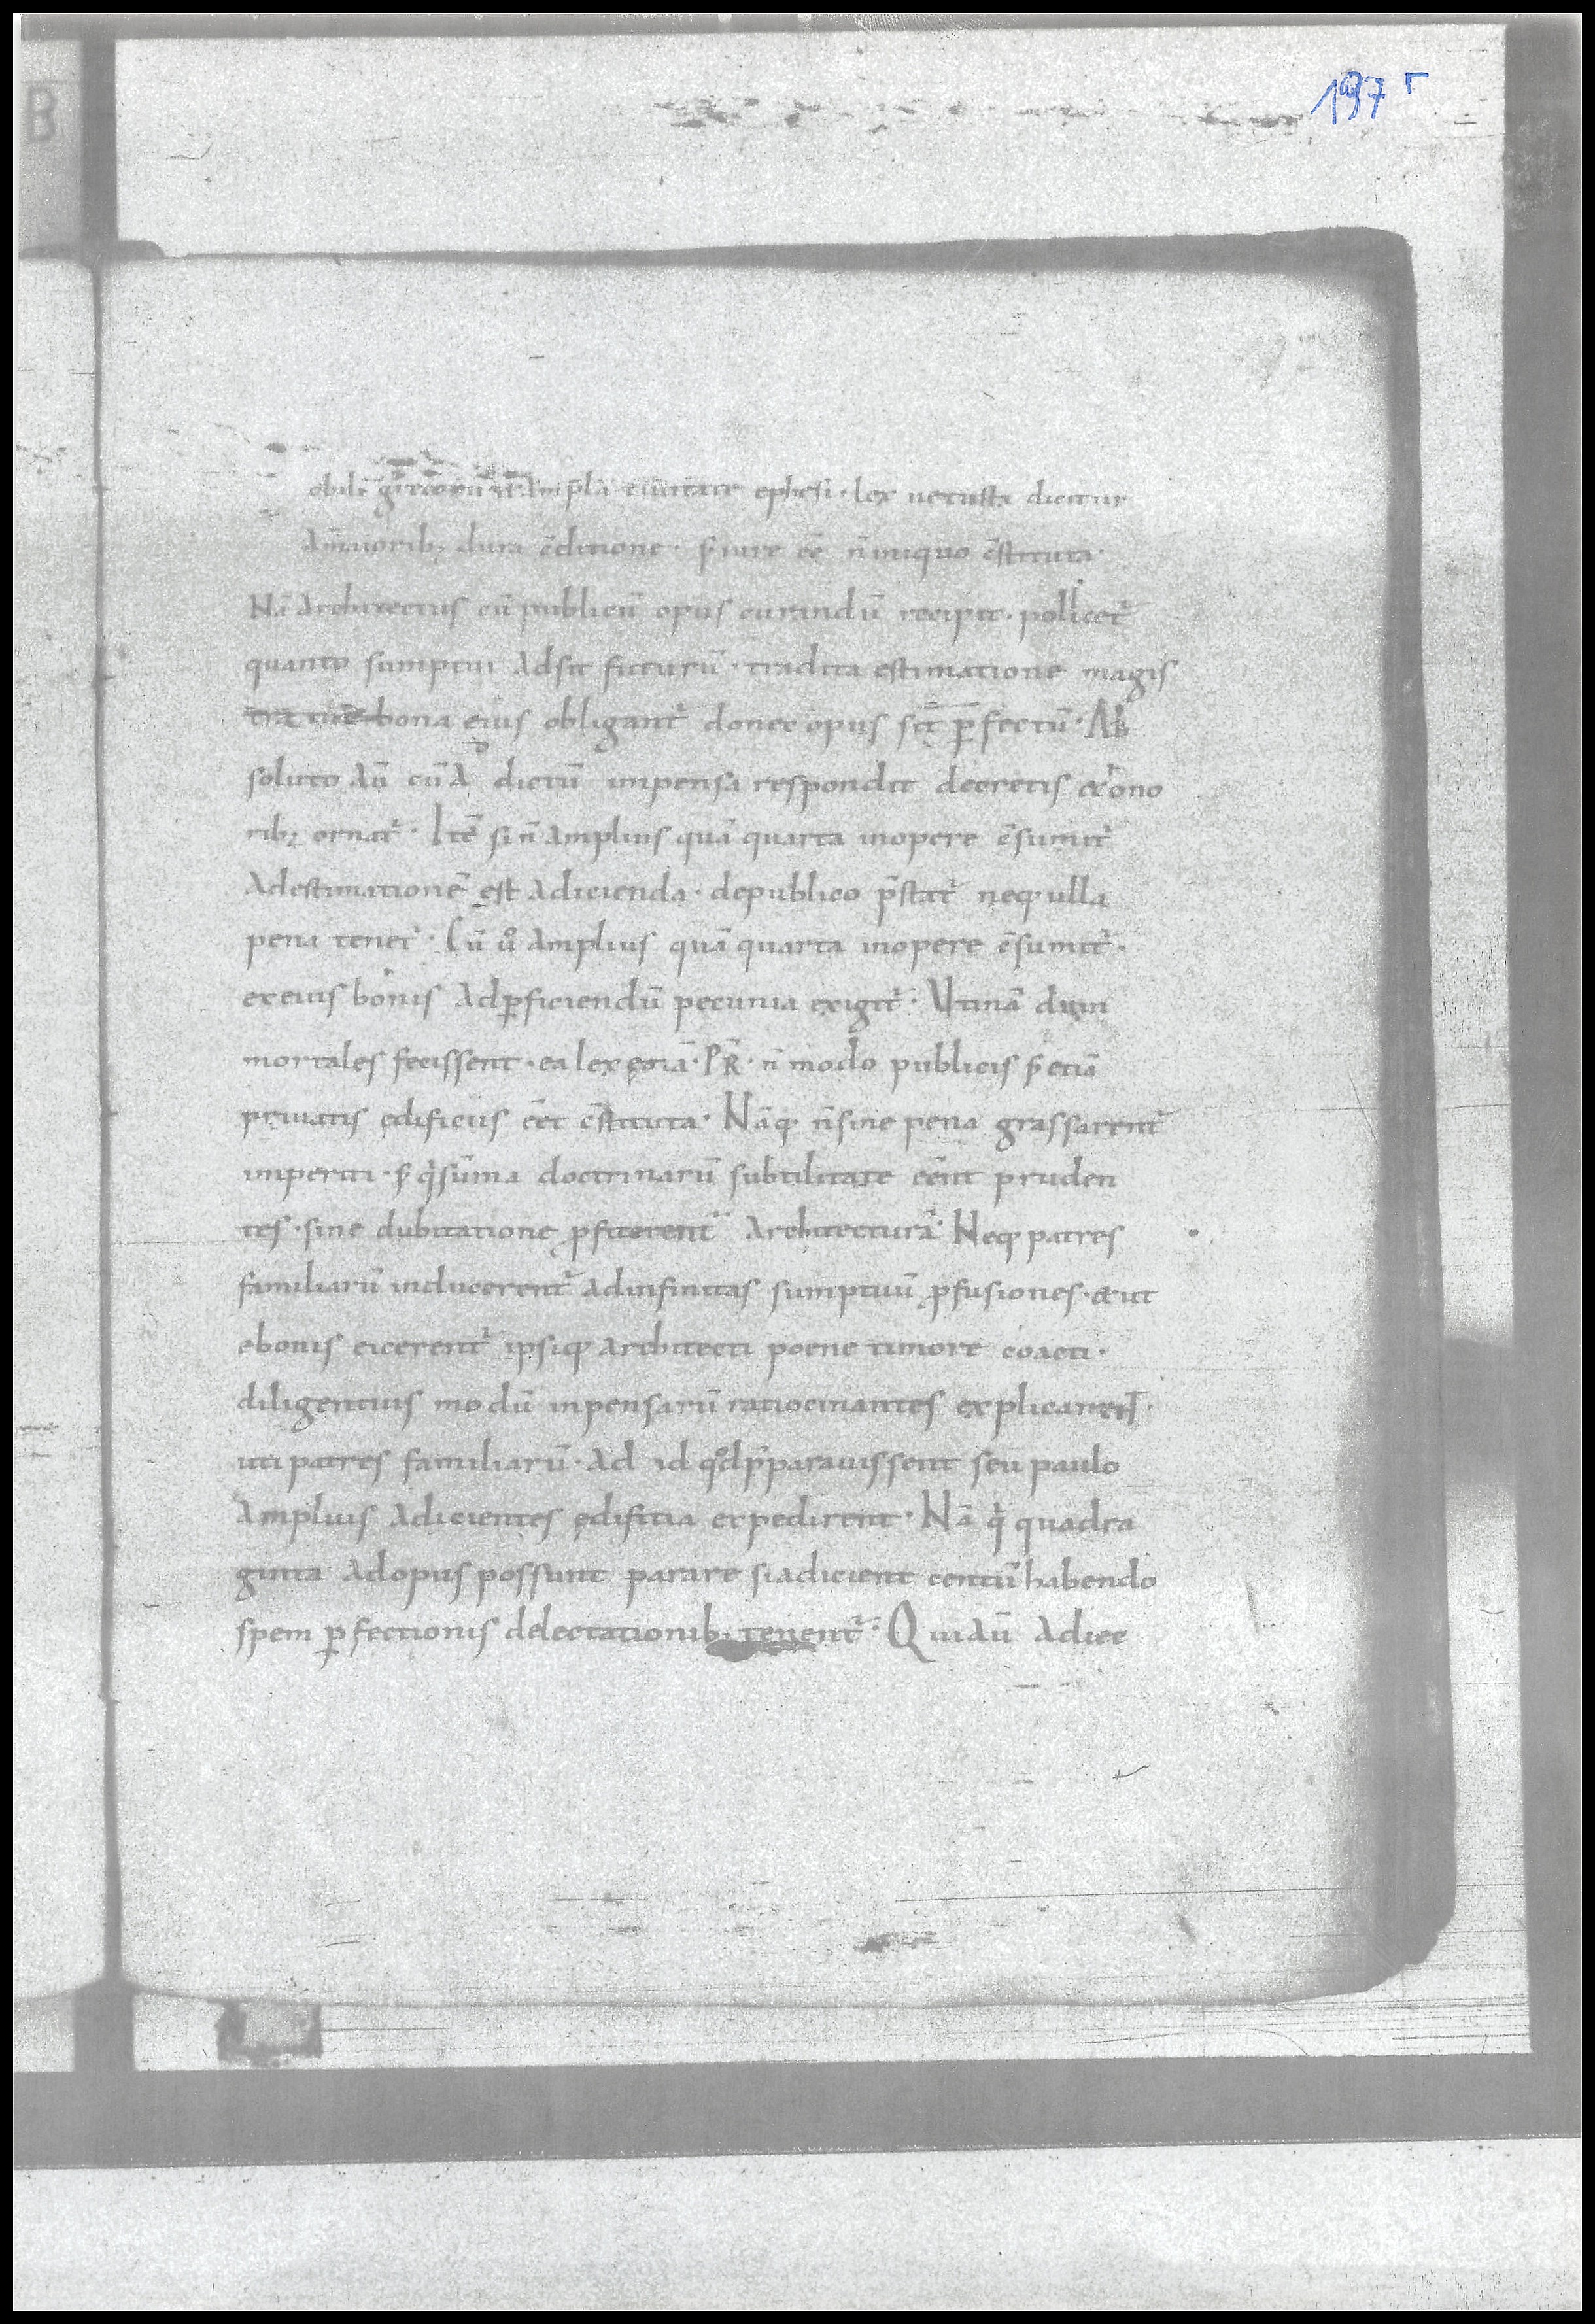 B
197 r
obili grecorū et ampla ciuitate ephesi · lex uetusta dicitur
Amaiorib; dura c̄ditione · s; iure ēē n̄ iniquo c̄stituta ·
Nā Architectus cū publicū opus curandū recipit · pollicet᷑
quanto sumptui Adsit futurū · tradita estimatione magis
bona eius obligant᷑ donec opus sit ꝑfectū · Ab
soluto Aū cū Ad dictū impensa respondit decretis &hono
rib; ornat᷑ · Itē si n̄ Amplius quā quarta inopere c̄sumit᷑
Adestimationē est Adicienda · depublico p̄stat᷑ neqꝫ ulla
pena tenet᷑ · Cū ů Amplius quā quarta inopere c̄sumit᷑ ·
exeius bonis Adꝑficiendū pecunia exigit᷑ · Utinā dum
mortales fecissent · ea lex etiā · P̄R · n̄ modo publicis s; etiā
priuatis ędificiis ēēt c̄stituta · Nāqꝫ n̄sine pena grassarent᷑
imperiti · s; q̇ sūma doctrinarū subtilitate ēēnt pruden
tes · sine dubitatione ꝓfiterent᷑ Architecturā · Neqꝫ patres
familiarū inducerent᷑ Adinfinitas sumptuū ꝓfusiones · &ut
ebonis eicerent᷑ ipsiqꝫ Architecti poene timore coacti ·
diligentius modū inpensarū ratiocinantes explicarent ·
uti patres familiarū · Ad id qd̊ p̄parauissent seu paulo
Amplius Adicientes ędifitia expedirent · Nā q̇ quadra
ginta Adopus possunt parare siadicient centū habendo
spem ꝑfectionis delectationib; tenent᷑ · Qui Aū Adiec